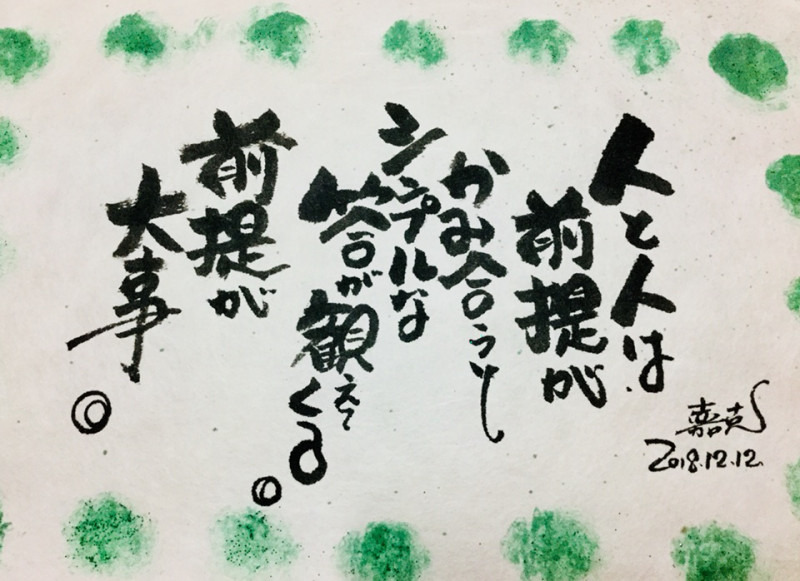 人と人は
前提が
かみ合うと
シンプルな
答が観えてくる。
前提が
大事。
嘉克
2018.12.12.